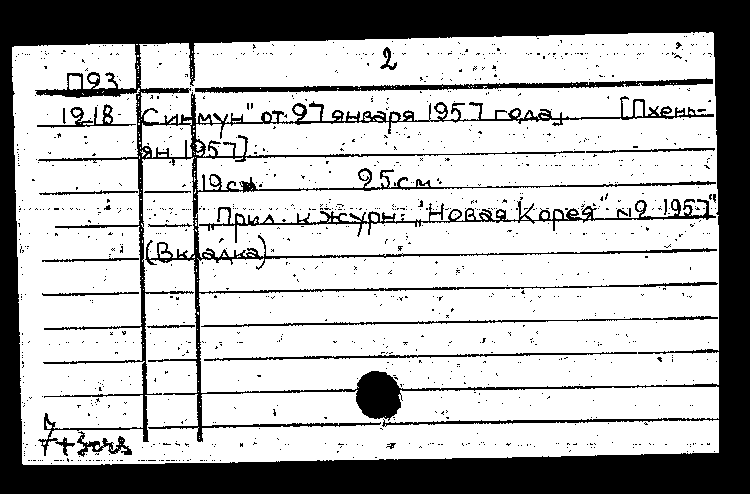 2
П93
1918 Синмун" от 27 января 1957 года, [Пхень-
ян, 1957].
19 см. 25 см.
"Прил. к журн: "Новая Корея" №2 1957"
(Вкладка)
7+3отв